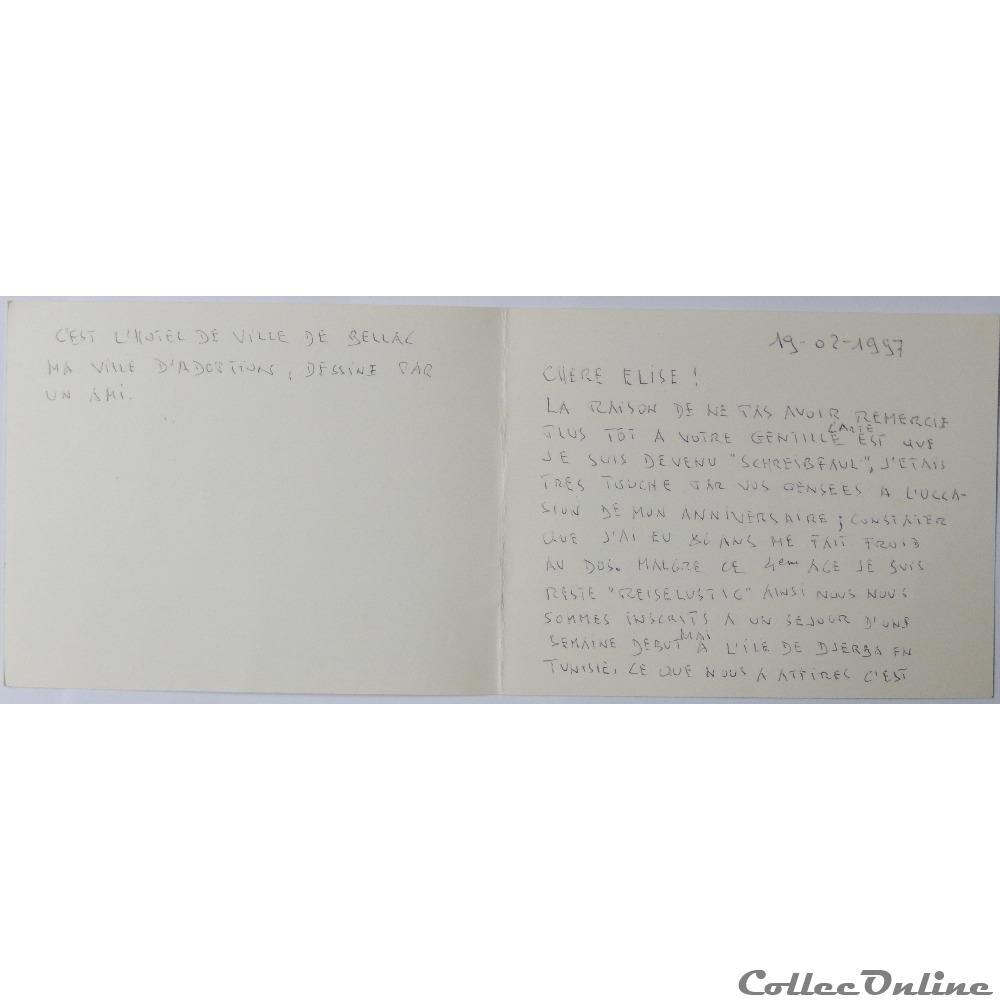 C'EST L'HOTEL DE VILLE DE BELLAC
MA VILLE D'ADOPTION, DESSINE PAR
UN AMI.
19-02-1997
CHERE ELISE !
LA RAISON DE NE PAS AVOIR REMERCIE
PLUS TOT A VOTRE GENTILLE CARTE EST QUE
JE SUIS DEVENU "SCHREIBFAUL", J'ETAIS
TRES TOUCHE PAR VOS PENSEES A L'OCCA-
SION DE MON ANNIVERSAIRE ; CONSTATER
QUE J'AI EU 86 ANS ME FAIT FROID
AU DOS. MALGRE CE 4eme AGE JE SUIS
RESTE "REISELUSTIG" AINSI NOUS NOUS
SOMMES INSCRITS A UN SEJOUR D'UNE
SEMAINE DEBUT MAI A L'ILE DE DJERBA EN
TUNISIE. CE QUE NOUS A ATTIRES C'EST
CollecOnline